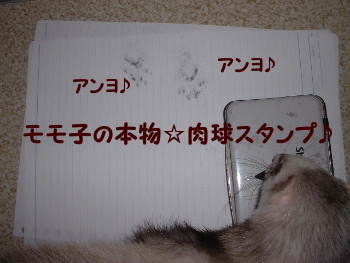 アンヨ♪
アンヨ♪
モモ子の本物☆肉球スタンプ♪